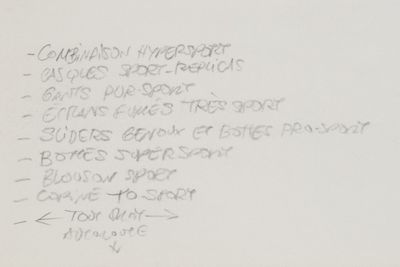 - COMBINAISON HYPERSPORT
- CASQUES SPORT-REPLICAS
- GANTS PUR-SPORT
- ECRANS FUMÉS TRÈS SPORT
- SLIDERS GENOUX ET BOTTES PRO-SPORT
- BOTTES SUPERSPORT
- BLOUSON SPORT
- COPINE TO-SPORT
- ← TOUT →
↓